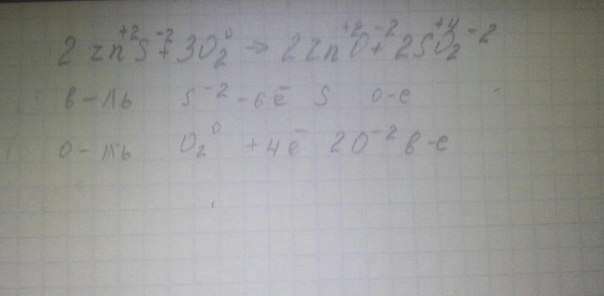 2 Zn⁺²S⁻² + 3O₂⁰ → 2Zn⁺²O⁻² + 2S⁺⁴O₂⁻²
в-ль S⁻² -6e⁻ S о-е
о-ль O₂⁰ +4e⁻ 2O⁻² в-е